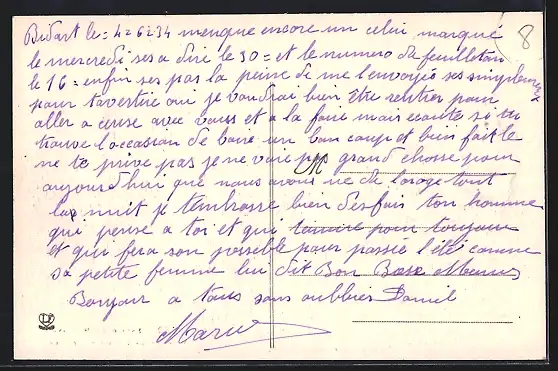 Bidart le = 4-26-234 menque encore un celui marqué
le mercredi ses a dire le 30 = et le numero de feuilleton
le 16 = enfin ses pas la peine de me l'envoyée ses simplement
pour tavertire oui je voudrai bien être rentrer pour
aller a avec vous et a la foire mais ecoute si tu
trouve l'occasion de boire un bon coup et bien fait le
ne te prive pas je ne voie pas grand chosse pour
aujourd'hui que nous avons ue de l'orage tout
la nuit je t'embrasse bien des fois ton homme
qui pense a toi et qui pour toujour
et qui fera son possible pour passée l'été comme
sa petite femme lui dit Bon
Bonjour a tous sans oublier Daniel
8
M